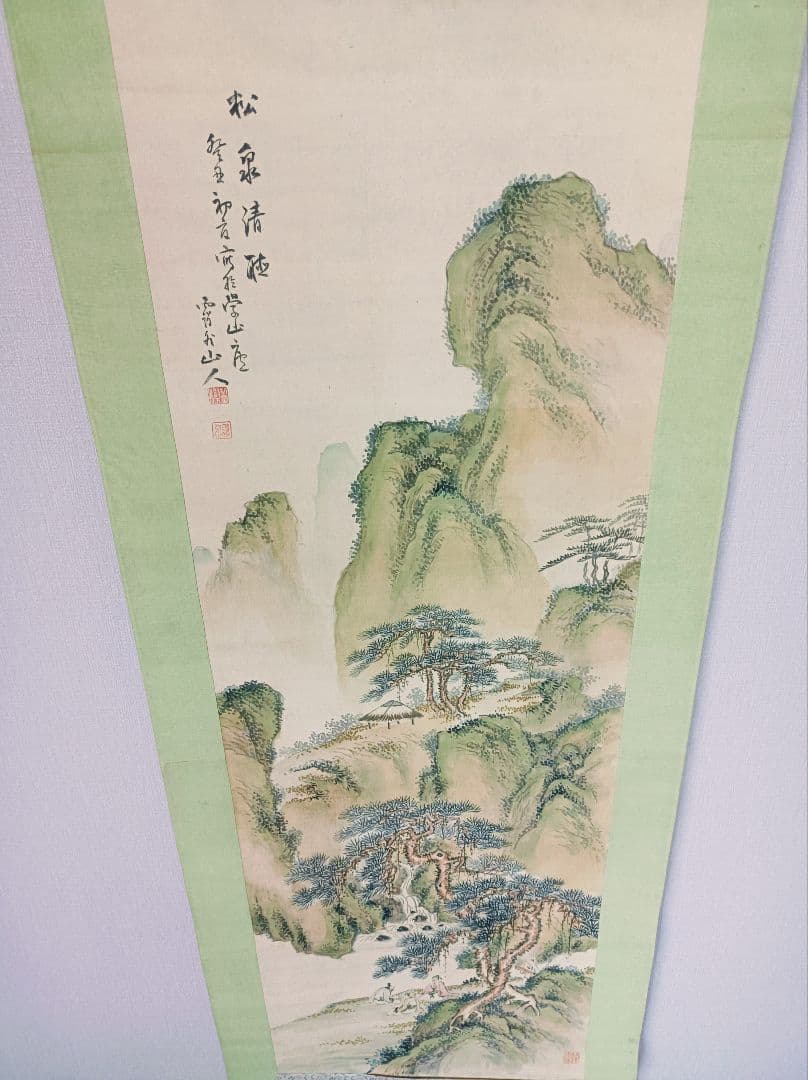 松泉清聴
癸丑初夏写於学山庵
山人